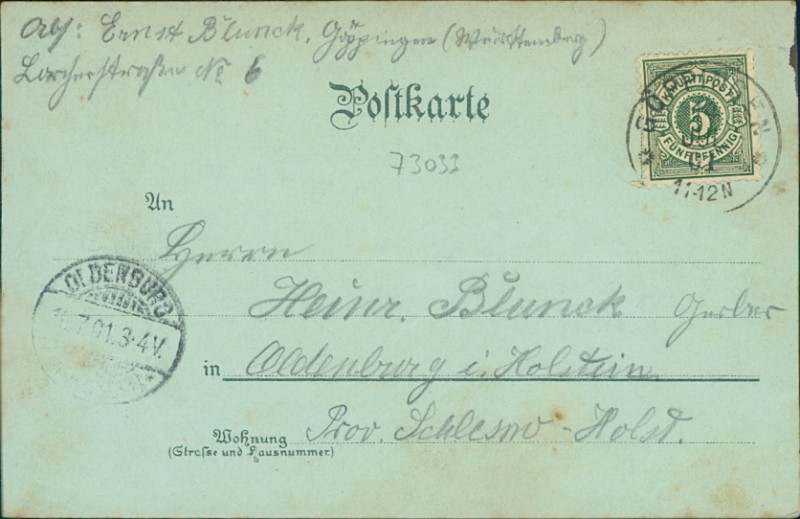 Abs: Ernst Blunck, Göppingen (Württemberg)
Lorcherstraße No 6
Postkarte
K. WÜRTT. POST
5
FÜNF PFENNIG
01
11-12N
73033
An
Herrn
Heinr. Blunck Gerber
in Oldenburg i. Holstein
Wohnung Prov. Schlesw-Holst.
(Strasse und Hausnummer)
OLDENBURG
7.01.3-4V.